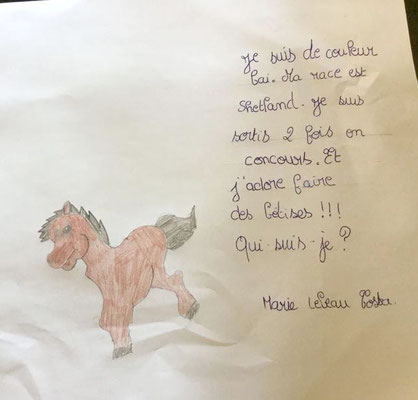 Je suis de couleur
bai. Ma race est
Shetland. Je suis
sortis 2 fois en
concours. Et
j'adore faire
des bétises !!!
Qui-suis-je ?
Marie